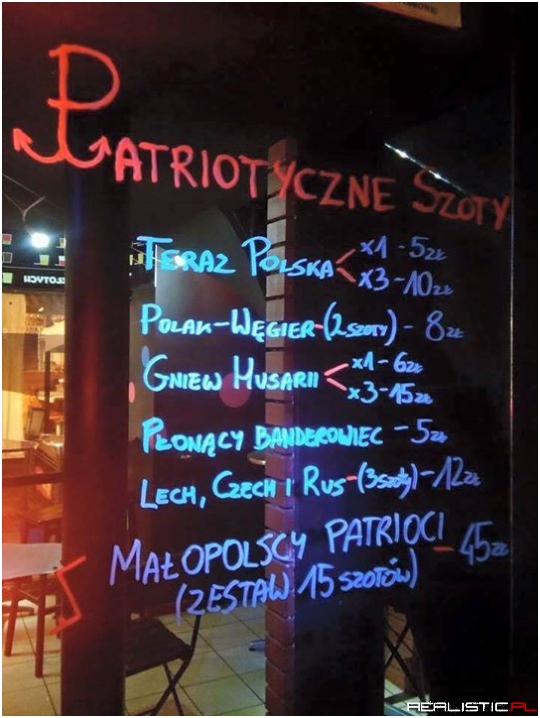 PATRIOTYCZNE SZOTY
TERAZ POLSKA x1 - 5zł
x3 - 10zł
POLAK-WĘGIER-(2 SZOTY) - 8zł
GNIEW HUSARII x1 - 6zł
x3 - 15zł
PŁONĄCY BANDEROWIEC - 5zł
LECH, CZECH I RUS - (3 szoty) - 12zł
MAŁOPOLSCY PATRIOCI - 45zł
(ZESTAW 15 SZOTÓW)
REALISTIC.PL